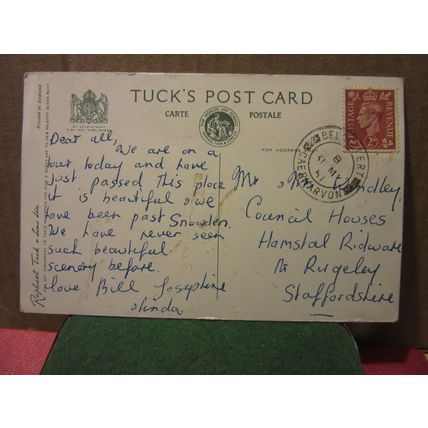 TUCK'S POST CARD
CARTE POSTALE
Printed in England
BY APPOINTMENT
FINE ART PUBLISHERS
Raphael Tuck & Sons Ltd.
FOR ADDRESS
POSTAGE
REVENUE
2½D
CAERNARVON
Dear all,
We are on a
tour today and have
just passed this place
it is beautiful & we
have been past Snowdon
We have never seen
such beautiful
scenery before.
love Bill Josephine
&linda
Mr & M
Council Houses
Hamstal Ridware
Nr Rugeley
Staffordshire